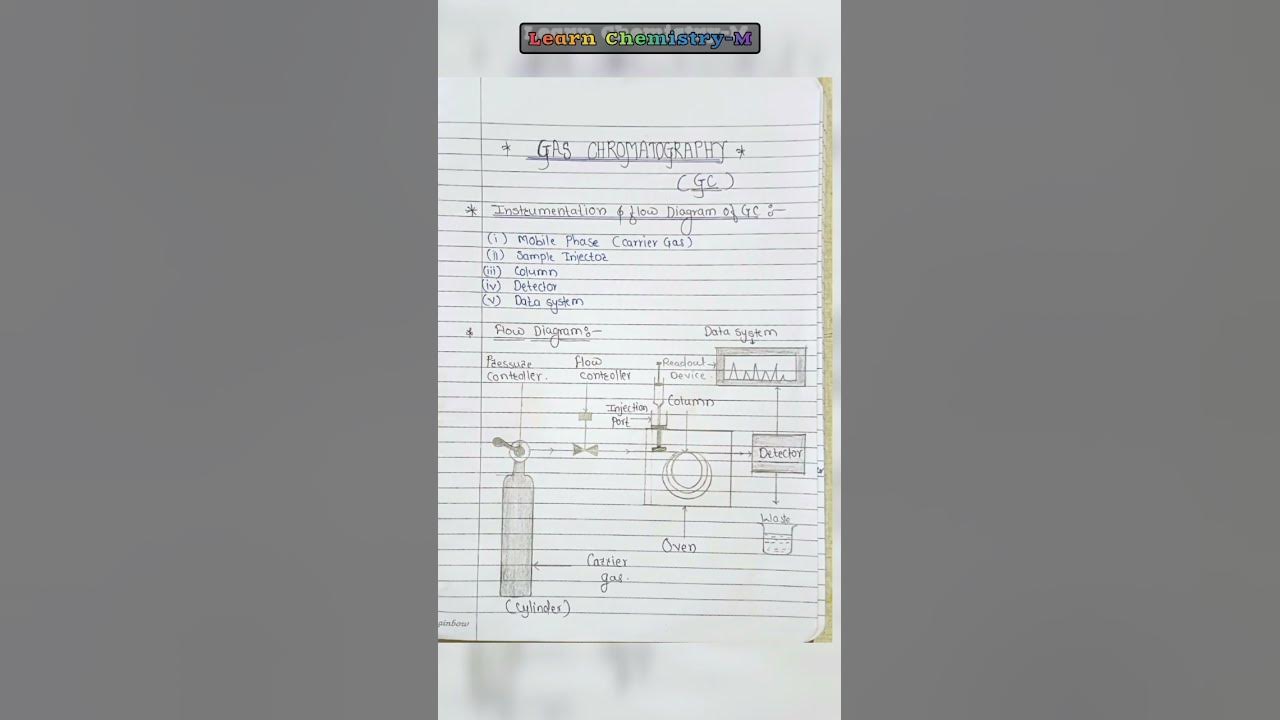 Learn Chemistry-M
* GAS CHROMATOGRAPHY *
(GC)
* Instrumentation & flow Diagram of GC :-
(i) Mobile Phase (Carrier Gas)
(ii) Sample Injector
(iii) Column
(iv) Detector
(v) Data system
* Flow Diagram:-
Data system
Pressure controller.
Flow controller
Readout Device
Injection Port
Column
Detector
Waste
Oven
Carrier gas.
(Cylinder)
ainbow